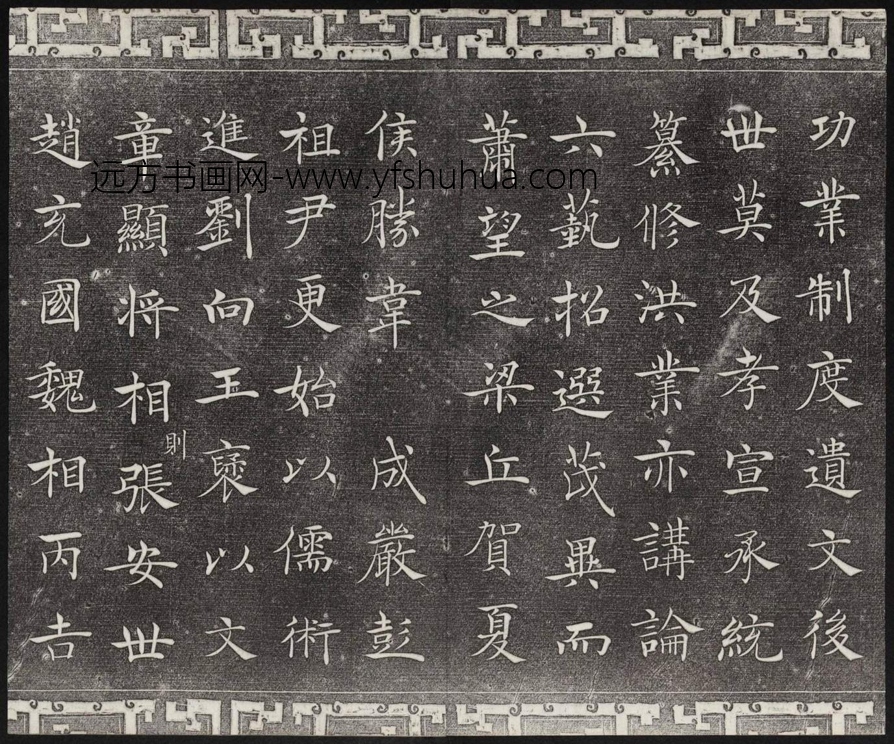 功業制度遺文後
世莫及孝宣承統
纂修洪業亦講論
六藝招選茂異而
蕭望之梁丘賀夏
侯勝韋 成嚴彭
祖尹更始以儒術
進劉向王褒以文
章顯将相張安世
則
趙充國魏相丙吉
远方书画网-www.yfshuhua.com